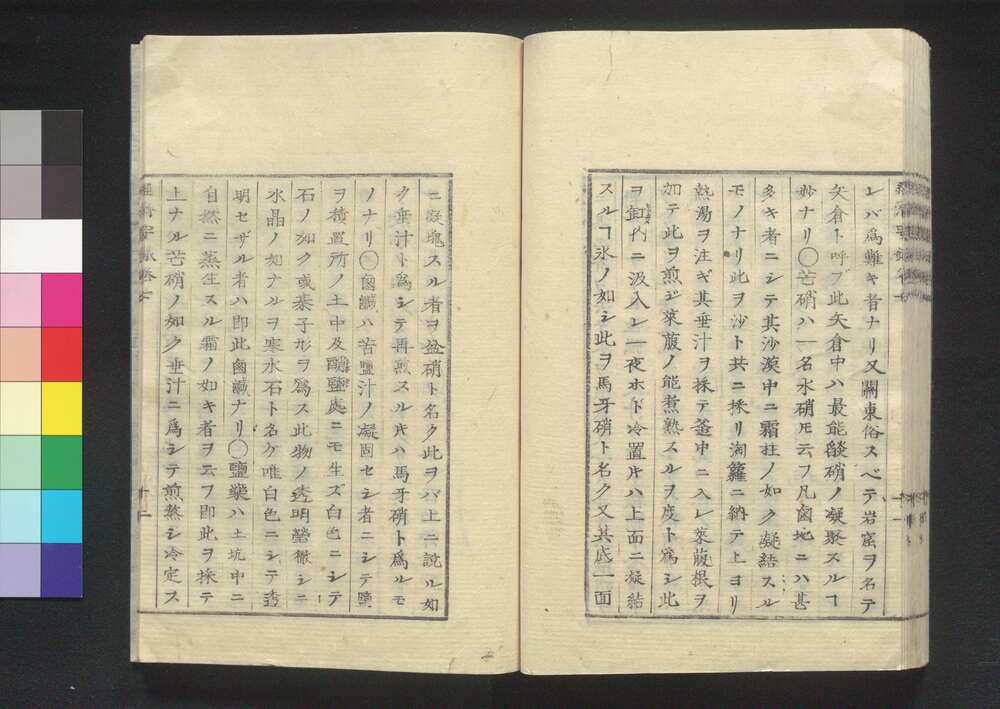 レバ爲難キ者ナリ又關東俗スベテ岩窟ヲ名テ
矢倉ト呼ブ此矢倉中ハ最能燄硝ノ凝聚スルヿ
妙ナリ〇芒硝ハ一名氷硝モ云フ凡鹵地ニハ甚
多キ者ニシテ其沙漠中ニ霜柱ノ如ク凝結スル
モノナリ此ヲ沙ト共ニ採リ淘籮ニ納テ上ヨリ
熱湯ヲ注ギ其垂汁ヲ採テ釜中ニ入レ萊菔根ヲ
加テ此ヲ煎ジ萊菔ノ能煮熟スルヲ度ト爲シ此
ヲ缸內ニ汲入レ一夜ホド冷置片ハ上面ニ凝結
スルヿ氷ノ如シ此ヲ馬牙硝ト名ク又其底一面
ニ凝塊スル者ヲ盆硝ト名ク此ヲバ上ニ說ル如
ク垂汁ト爲シテ再煎スル片ハ馬牙硝ト爲ルモ
ノナリ〇鹵鹹ハ苦鹽汁ノ凝固セシ者ニシテ鹽
ヲ積置所ノ土中及鹽處ニモ生ズ白色ニシテ
石ノ如ク或碁子形ヲ爲ス此物ノ透明瑩徹シテ
水晶ノ如ナルヲ寒水石ト名ク唯白色ニシテ透
明セザル者ハ即此鹵鹹ナリ〇鹽藥ハ土坑中ニ
自然ニ蒸生スル霜ノ如キ者ヲ云フ即此ヲ採テ
上ナル芒硝ノ如ク垂汁ニ爲シテ煎熬シ冷定ス
十二